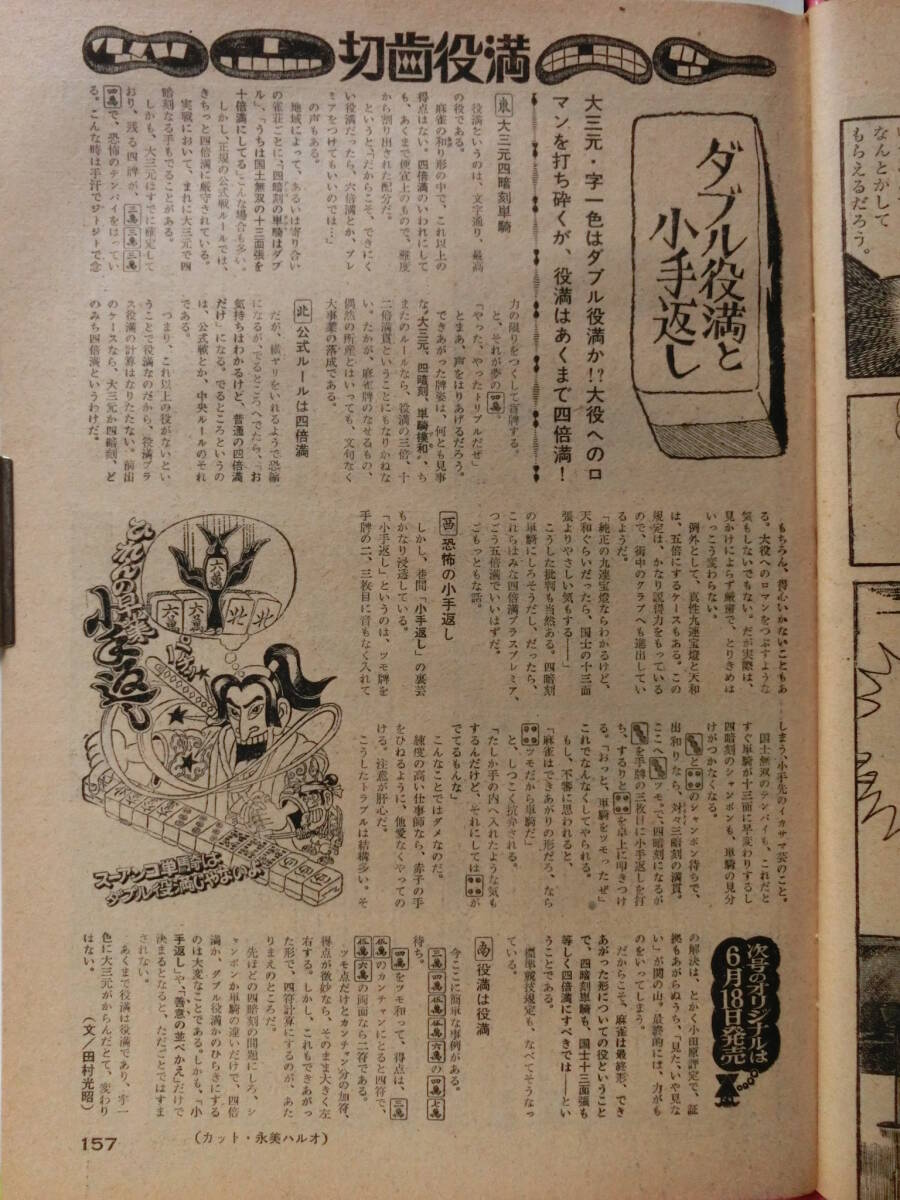 切歯役満
ダブル役満と
小手返し
大三元・字一色はダブル役満か!?大役へのロ
マンを打ち砕くが、役満はあくまで四倍満!
東 大三元四暗刻単騎
役満というのは、文字通り、最高
の役である。
麻雀の和り形の中で、これ以上の
得点はない。四倍満のいわれにして
も、あくまで便宜上のもので、難度
から割り出された配分だ。
というと、「だからこそ、できにく
い役満だったら、六倍満とか、プレ
ミアをつけてもいいのでは…」
の声もある。
地域によって、あるいは寄り合い
の雀荘ごとに、「四暗刻の単騎はダブ
ル」、「うちは国士無双の十三面張を
十倍満にしてる」こんな場合も多い。
しかし、正規の公式戦ルールでは、
きちっと四倍満に厳守されている。
実戦において、まれに大三元で四
暗刻なる手もでることがある。
しかも、大三元はすでに確定して
おり、残る四牌が、三萬三萬三萬
四萬で、恐怖のテンパイをはってい
る。こんな時は手汗でジトジトで念
力の限りをつくして盲牌する。
と、それが夢の四萬。
「やった、やったトリプルだぜ」
とまあ、声をはりあげるだろう。
できあがった牌姿は、何とも見事
な〝大三元、四暗刻、単騎模和〟、ち
またのルールなら、役満の三倍、十
二倍満貫ということにもなりかねな
い。たかが、麻雀牌のなせるもの、
偶然の所産とはいっても、文句なく
大事業の落成である。
北 公式ルールは四倍満
だが、横ヤリをいれるようで恐縮
になるが、でるところへでたら、「お
気持ちはわかるけど、普通の四倍満
だけ」になる。でるところというの
は、公式戦とか、中央ルールのそれ
である。
つまり、これ以上の役がないとい
うことで役満なのだから、役満プラ
ス役満の計算はなりたたない。前出
のケースなら、大三元か四暗刻、ど
のみち四倍満というわけだ。
もちろん、得心いかないこともあ
る。大役へのロマンをつぶすような
気もしないでもない。だが実際は、
見かけによらず厳密で、とりきめは
いっこう変わらない。
例外として、真性九連宝燈と天和
は、五倍にするケースもある。この
規定は、かなり説得力をもっている
ので、街中のクラブへも進出してい
るようだ。
「純正の九連宝燈ならわかるけど、
天和ぐらいだったら、国士の十三面
張よりやさしい気もする――」
こうした批判も当然ある。四暗刻
の単騎にしろそうだし、だったら、
これらはみな四倍満プラスプレミア、
つごう五倍満でいいはずだ。
ごもっともな話。
西 恐怖の小手返し
しかし、巷間「小手返し」の裏芸
もかなり浸透している。
「小手返し」というのは、ツモ牌を
手牌の二、三枚目に音もなく入れて
しまう、小手先のイカサマ芸のこと。
国士無双のテンパイも、これだと
すぐ単騎が十三面に早変わりするし
四暗刻のシャンポンも、単騎の見分
けがつかなくなる。
とのシャンポン待ちで、
出和りなら、対々三暗刻の満貫。
ここへツモで、四暗刻になるが
を手牌の三枚目に小手返しを打
ち、するりとを卓上に叩きつけ
る。「おっと、単騎をツモったぜ」
これでなんなくしてやられる。
もし、不審に思われると、
「麻雀はできあがりの形だろ、なら
ツモだから単騎だ」
と、しつこく抗弁される。
「たしか手の内へ入れたような気も
するんだけど、それにしてはが
でてるもんな」
こんなことではダメなのだ。
練度の高い仕事師なら、赤子の手
をひねるように、他愛なくやっての
ける。注意が肝心だ。
こうしたトラブルは結構多い。そ
の解決は、とかく小田原評定で、証
拠もあがらぬうち、「見た、いや見な
い」が関の山。最終的には、力がも
のをいってしまう。
だからこそ、麻雀は最終形、でき
あがった形についての役ということ
で、四暗刻単騎も、国士十三面張も
等しく四倍満にすべきでは――とい
うことである。
標準競技規定も、なべてそうなっ
ている。
南 役満は役満
今ここに簡単な事例がある。
三萬四萬伍萬伍萬六萬の四萬七萬
待ち。
四萬をツモ和って、得点は、三萬
伍萬のカンチャンにとると四符で、
伍萬六萬の両面なら二符である。
ツモ点だけとカンチャン分の加符、
得点が微妙なら、そのまま大きく左
右する。しかし、これもできあがっ
た形で、四符計算にするのが、あた
りまえのところだ。
先ほどの四暗刻の問題にしろ、シ
ャンポンか単騎の違いだけで、四倍
満か、ダブル役満かのひらきにする
のは大変なことである。しかも、「小
手返し」や、「善意の並べかえ」だけで
決まるとなると、ただごとではすま
されない。
あくまで役満は役満であり、字一
色に大三元がからんだとて、変わり
はない。
(文/田村光昭)
次号のオリジナルは
6月18日発売
小手返し
六萬
六萬
六萬
北
北
スーアンコ単騎は
ダブル役満じゃないよ
(カット・永美ハルオ)
157
なんとかして
もらえるだろう。